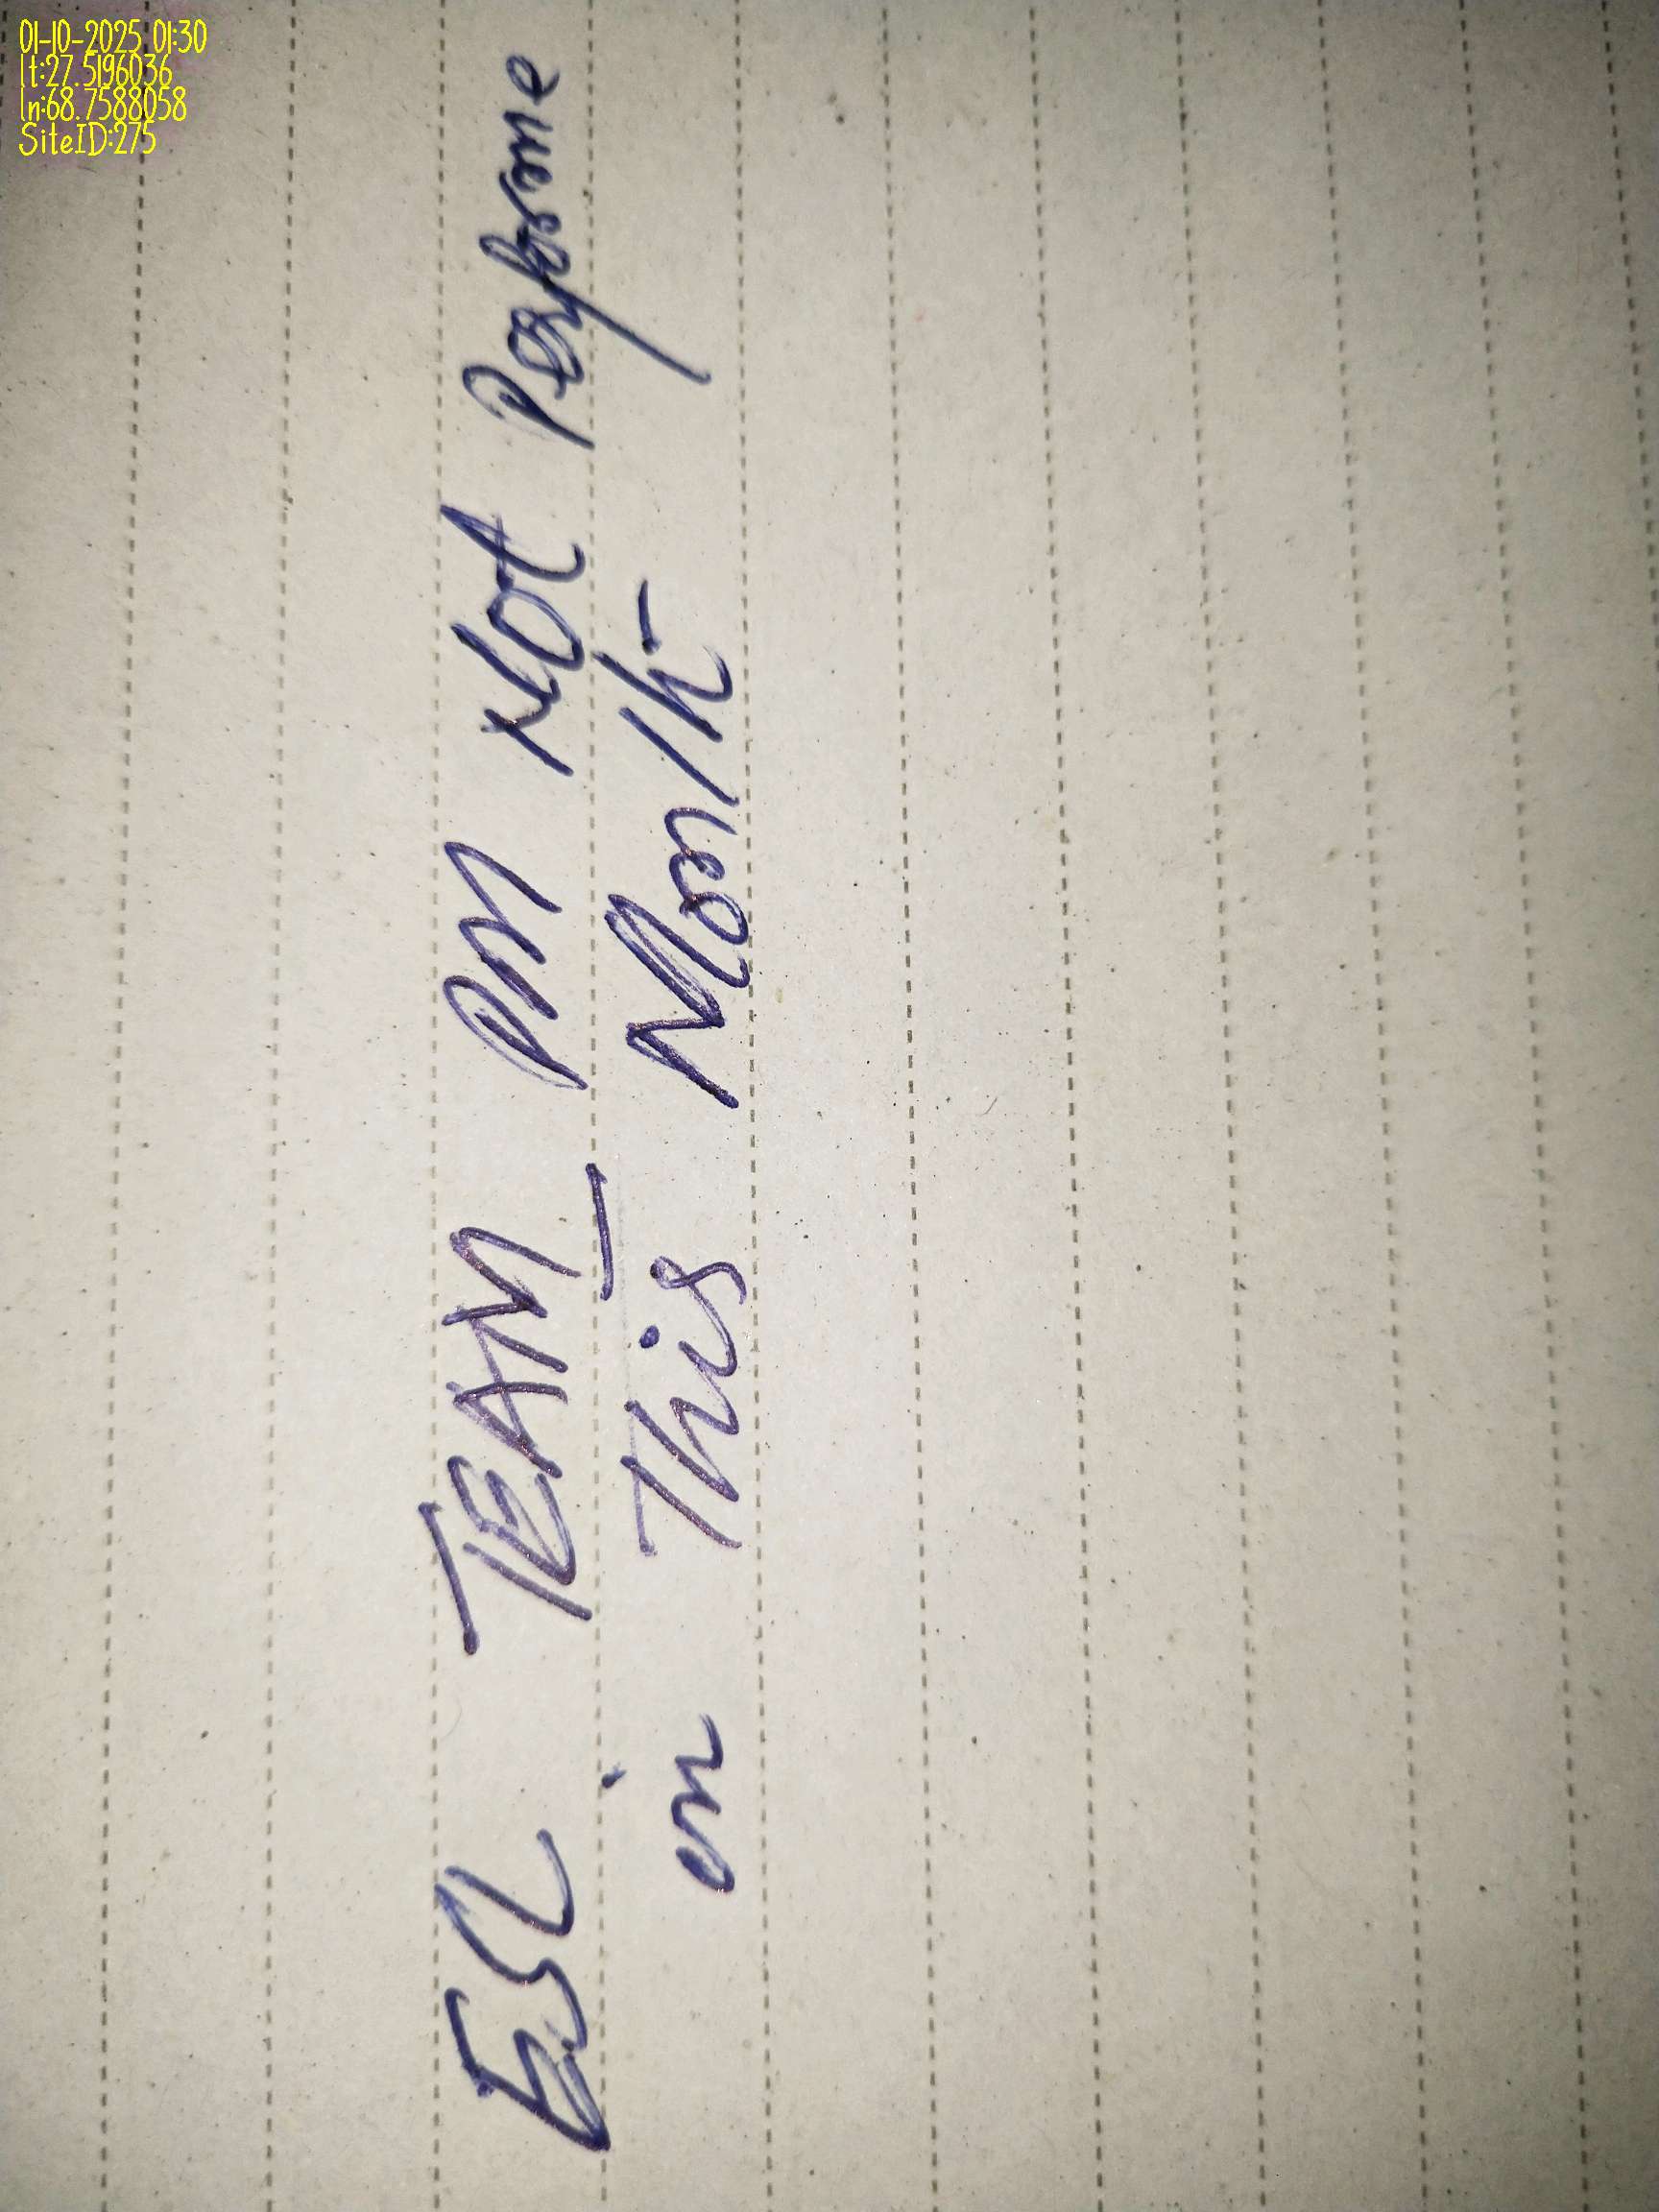 01-10-2025 01:30
lt:27.5196036
ln:68.7588058
SiteID:275
ESL TEAM PM Not Perfrome
in This Month